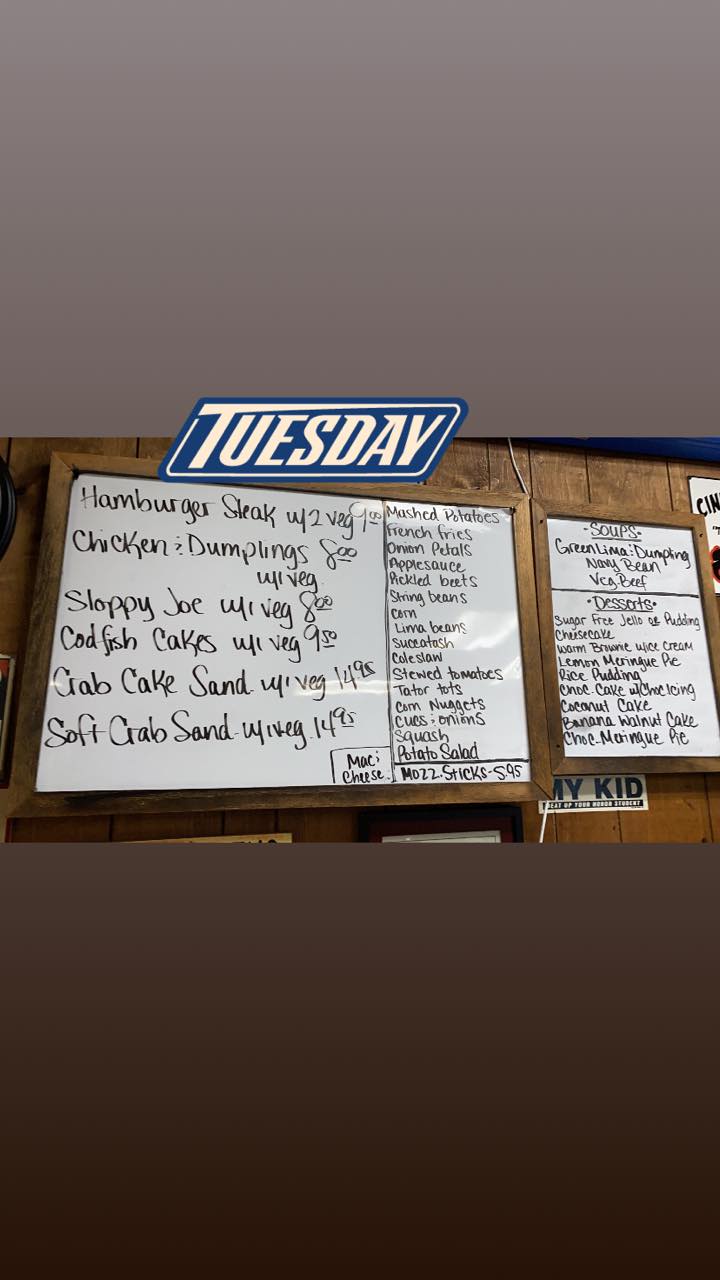 TUESDAY
Hamburger Steak w/2 veg 9.00
Chicken & Dumplings 8.00
w/1 veg
Sloppy Joe w/1 veg 8.00
Codfish Cakes w/1 veg 9.50
Crab Cake Sand. w/1 veg 14.95
Soft Crab Sand. w/1 veg 14.95
Mac &
Cheese
Mashed Potatoes
French fries
Onion Petals
Applesauce
Pickled beets
String beans
Corn
Lima beans
Succatash
Coleslaw
Stewed tomatoes
Tator tots
Corn Nuggets
Cucs & onions
Squash
Potato Salad
Mozz. Sticks - 5.95
-SOUPS-
Green Lima & Dumpling
Navy Bean
Veg. Beef
•Desserts•
Sugar Free Jello or Pudding
Cheesecake
Warm Brownie w/ice cream
Lemon Meringue Pie
Rice Pudding
Choc. Cake w/Choc Icing
Coconut Cake
Banana Walnut Cake
Choc. Meringue Pie
CIN
MY KID
BEAT UP YOUR HONOR STUDENT